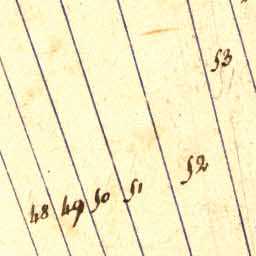 53
52
48 49 50 51